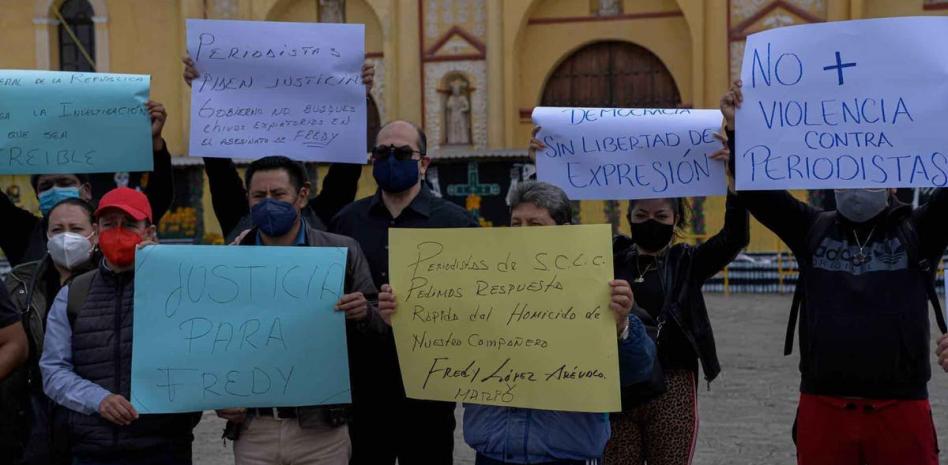 ERAL DE LA REPUBLICA
LA INVESTIGACIÓN
QUE SEA
REIBLE
PERIODISTAS
PIDEN JUSTICIA
GOBIERNO NO BUSQUES
CHIVOS EXPIATORIOS EN
EL ASESINATO DE FREDY
DEMOCRACIA
SIN LIBERTAD DE
EXPRESIÓN
NO +
VIOLENCIA
CONTRA
PERIODISTAS
JUSTICIA
PARA
FREDY
PERIODISTAS DE S.C.L.C.
PEDIMOS RESPUESTA
RAPIDA DEL HOMICIDIO DE
NUESTRO COMPAÑERO
FREDY LÓPEZ ARÉVALO.
adidas